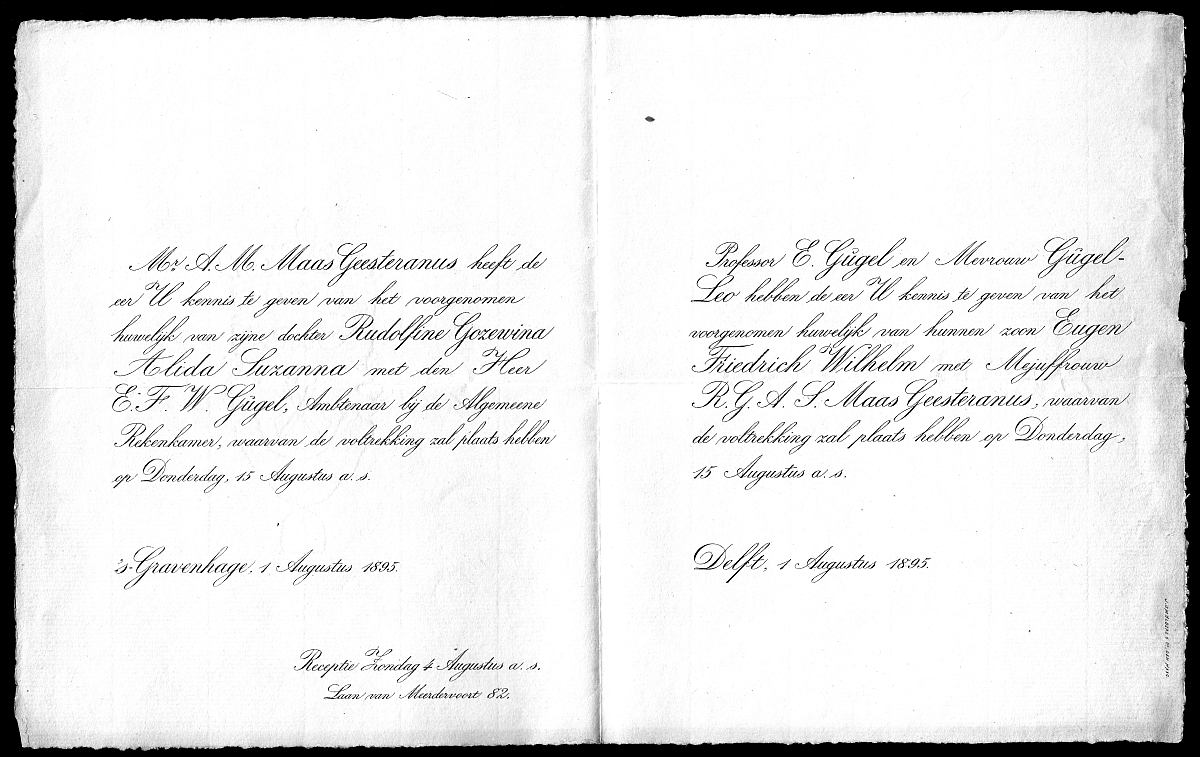 Mr. A. M. Maas Geesteranus heeft de
eer U kennis te geven van het voorgenomen
huwelijk van zijne dochter Rudolfine Gozewina
Alida Suzanna met den Heer
E. F. W. Gügel, Ambtenaar bij de Algemeene
Rekenkamer, waarvan de voltrekking zal plaats hebben
op Donderdag, 15 Augustus a. s.
's-Gravenhage, 1 Augustus 1895.
Receptie Zondag 4 Augustus a. s.
Laan van Meerdervoort 82.
Professor E. Gügel en Mevrouw Gügel-
Leo hebben de eer U kennis te geven van het
voorgenomen huwelijk van hunnen zoon Eugen
Friedrich Wilhelm met Mejuffrouw
R. G. A. S. Maas Geesteranus, waarvan
de voltrekking zal plaats hebben op Donderdag,
15 Augustus a. s.
Delft, 1 Augustus 1895.